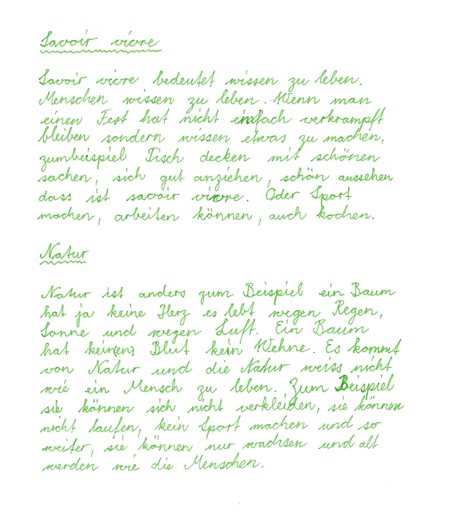 Savoir vivre
Savoir vivre bedeutet wissen zu leben.
Menschen wissen zu leben. Wenn man
einen Fest hat nicht einfach verkrampft
bleiben sondern wissen etwas zu machen,
zumbeispiel Tisch decken mit schönen
sachen, sich gut anziehen, schön aussehen
dass ist savoir vivre. Oder Sport
machen, arbeiten können, auch kochen.
Natur
Natur ist anders zum Beispiel ein Baum
hat ja keine Herz es lebt wegen Regen,
Sonne und wegen Luft. Ein Baum
hat keinen Blut kein Wehne. Es kommt
von Natur und die Natur weiss nicht
wie ein Mensch zu leben. Zum Beispiel
sie können sich nicht verkleiden, sie können
nicht laufen, kein Sport machen und so
weiter, sie können nur wachsen und alt
werden wie die Menschen.